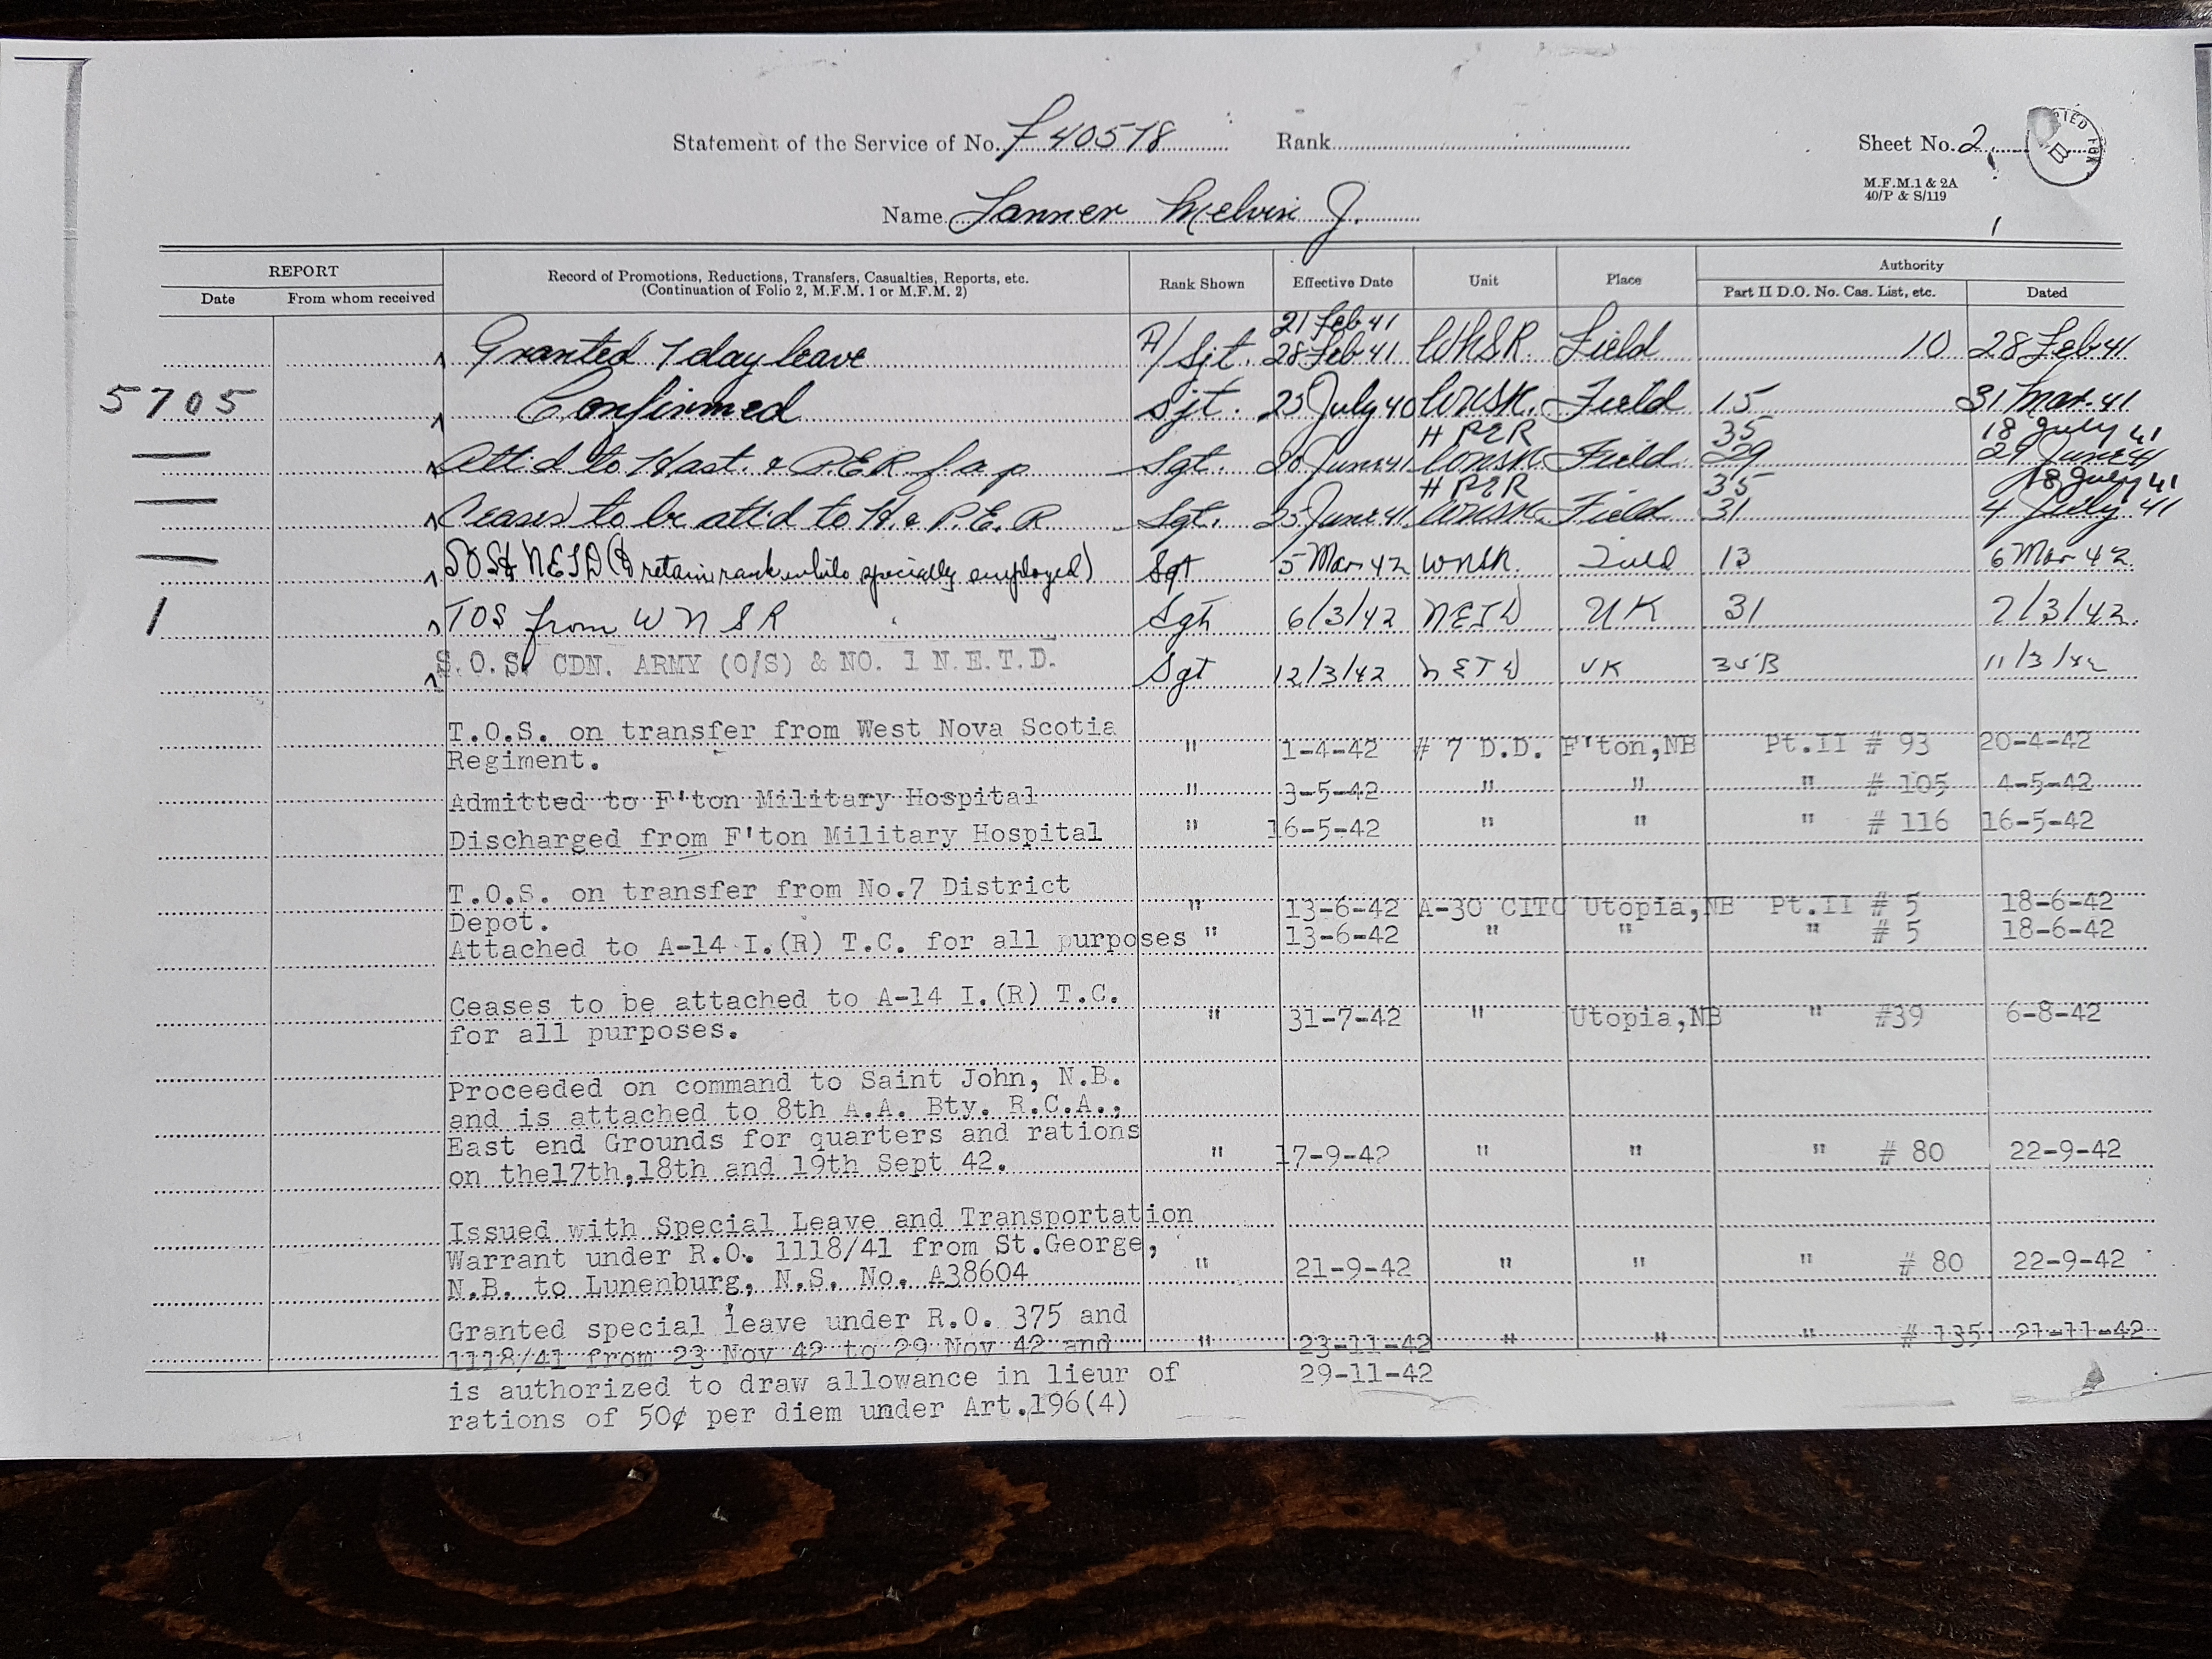 Statement of the Service of No. F 40578 Rank Sheet No. 2
M.F.M.1 & 2A
40/P & S/119
Name Melvin J.
REPORT Record of Promotions, Reductions, Transfers, Casualties, Reports, etc. Rank Shown Effective Date Unit Place Authority
Date From whom received (Continuation of Folio 2, M.F.M. 1 or M.F.M. 2) Part II D.O. No. Cas. List, etc. Dated
21 Feb 41
Granted 7 day leave A/Sjt. 28 Feb 41 WNSR. Field 10 28 Feb 41
5705 Confirmed Sjt. 25 July 40 WNSR. Field 15 31 Mar. 41
H PER 35 18 July 41
Att'd to Hast. & P.E.R. f a p Sgt. June 41 WNSR Field 29 29 June 41
H PER 35 18 July 41
Ceases to be att'd to H. & P.E.R Sgt. 25 June 41 WNSR Field 31 4 July 41
SOS NETD (retain rank while specially employed) Sgt 5 Mar 42 WNSR. Field 13 6 Mar 42
1 TOS from WNSR Sgt 6/3/42 NETD UK 31 7/3/42
S.O.S. CDN. ARMY (O/S) & NO. 1 N.E.T.D. Sgt 12/3/42 NETD UK 35B 11/3/42
T.O.S. on transfer from West Nova Scotia
Regiment. " 1-4-42 # 7 D.D. F'ton,NB Pt.II # 93 20-4-42
Admitted to F'ton Military Hospital " 3-5-42 " " " # 105 4-5-42
Discharged from F'ton Military Hospital " 16-5-42 " " " # 116 16-5-42
T.O.S. on transfer from No.7 District
Depot. " 13-6-42 A-30 CITC Utopia,NB Pt.II # 5 18-6-42
Attached to A-14 I.(R) T.C. for all purposes " 13-6-42 " " " # 5 18-6-42
Ceases to be attached to A-14 I.(R) T.C.
for all purposes. " 31-7-42 " Utopia,NB " #39 6-8-42
Proceeded on command to Saint John, N.B.
and is attached to 8th A.A. Bty. R.C.A.,
East end Grounds for quarters and rations
on the17th,18th and 19th Sept 42. " 17-9-42 " " " # 80 22-9-42
Issued with Special Leave and Transportation
Warrant under R.O. 1118/41 from St.George,
N.B. to Lunenburg, N.S. No. A38604 " 21-9-42 " " " # 80 22-9-42
Granted special leave under R.O. 375 and
1118/41 from 23 Nov 42 to 29 Nov 42 and " 23-11-42 " " " # 135 21-11-42
is authorized to draw allowance in lieur of 29-11-42
rations of 50¢ per diem under Art.196(4)